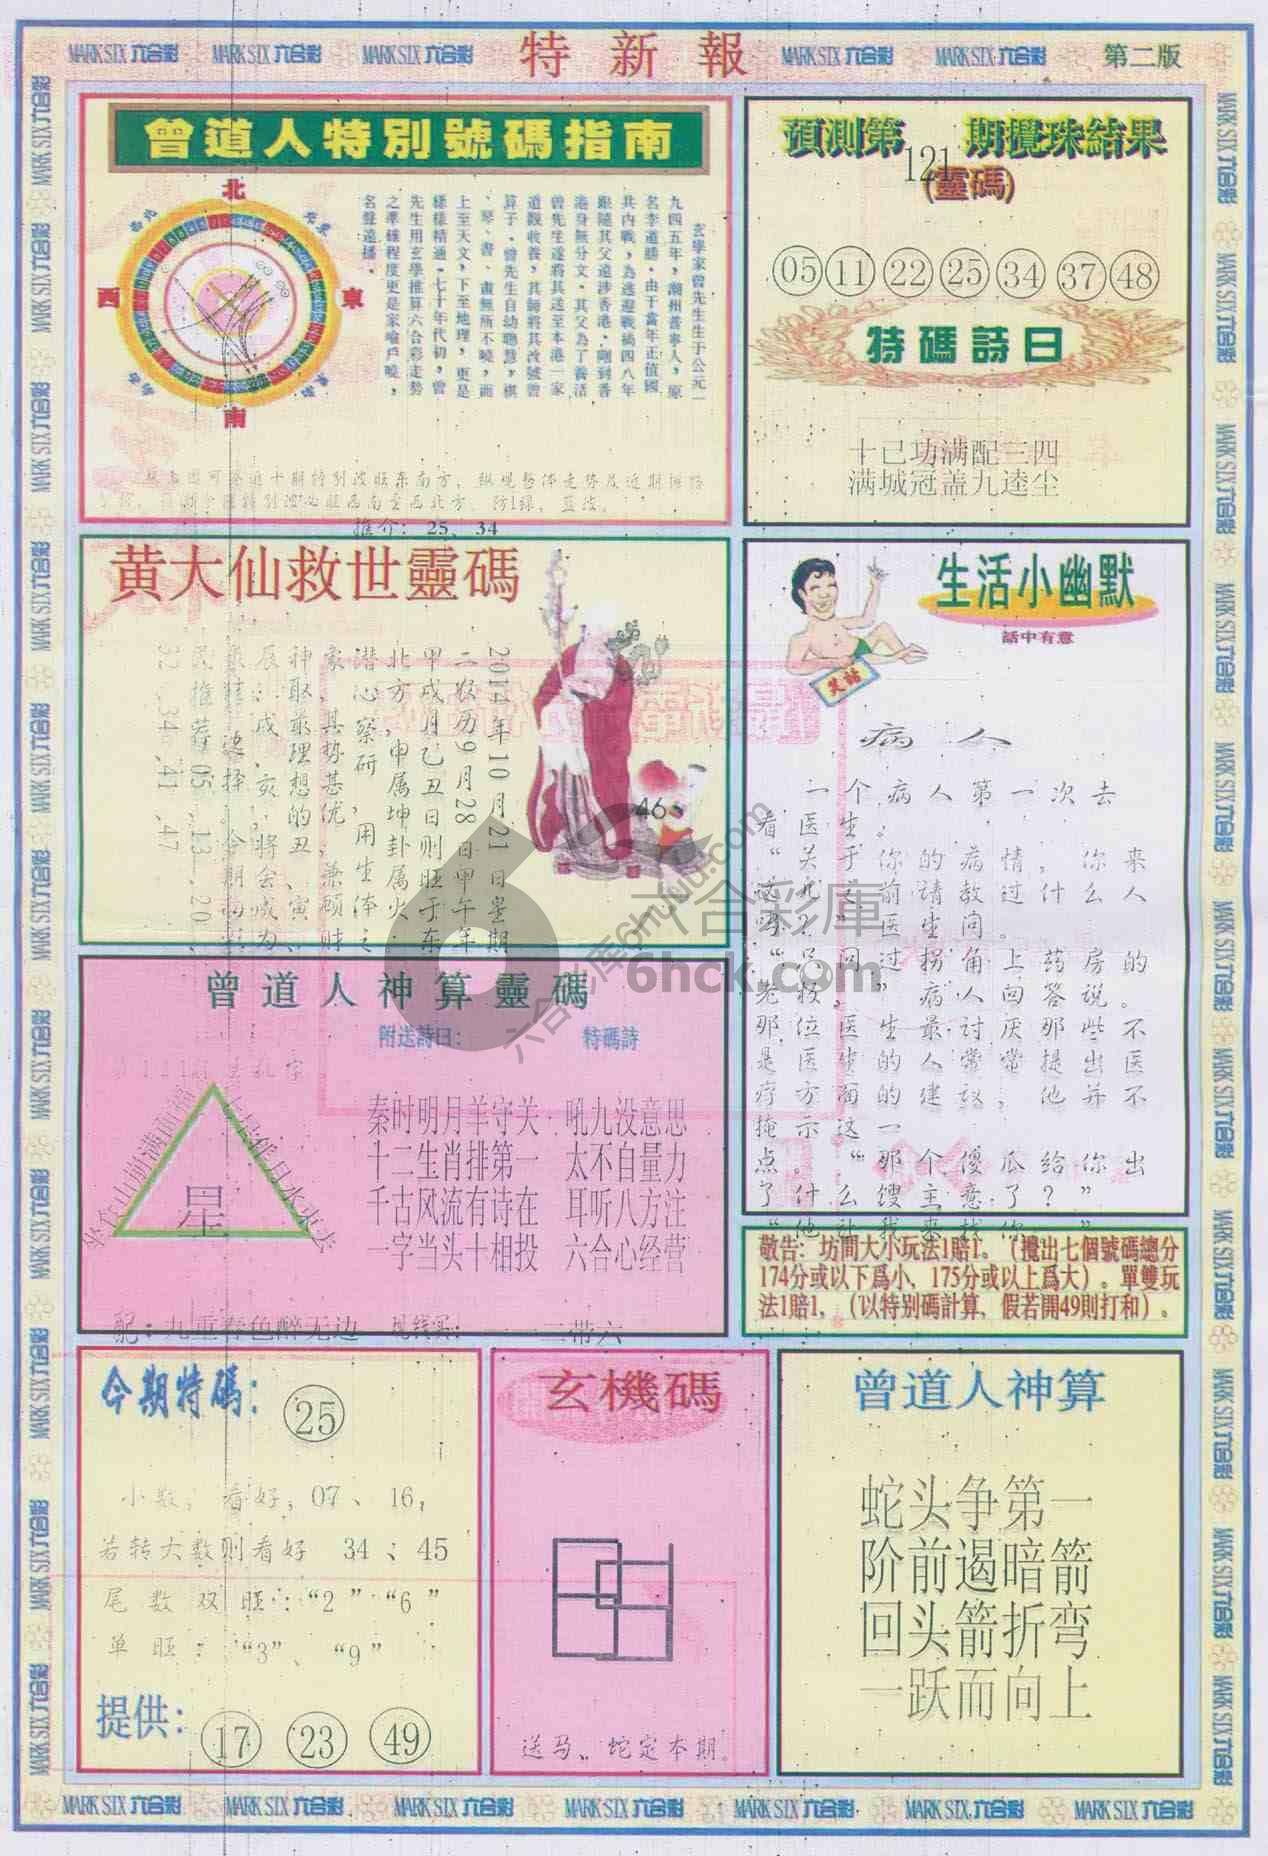 MARK SIX 六合彩 MARK SIX 六合彩 MARK SIX 六合彩 特新報 MARK SIX 六合彩 MARK SIX 六合彩 第二版
曾道人特別號碼指南
北
東
西
南
玄學家曾先生生于公元一
九四五年，潮州普寧人，原
名李道勝，由于當年正值國
共內戰，為逃避戰禍四八年
跟隨其父遠涉香港，剛到香
港身無分文，其父為了養活
曾先生遂將其送至本港一家
道觀收養，其師將其改號曾
算子，曾先生自幼聰慧，棋
、琴、書、畫無所不曉，而
上至天文，下至地理，更是
樣樣精通，七十年代初，曾
先生用玄學推算六合彩走勢
之準確程度更是家喻戶曉，
名聲遠播。
推介：25、34
預測第121期攪珠結果
(靈碼)
05 11 22 25 34 37 48
特碼詩曰
十已功满配三四
满城冠盖九逵尘
黄大仙救世靈碼
2014年10月21日星期
二农历9月28日甲午年
甲戌月乙丑日则旺于东
北方，申属坤卦属火，
潜心察研，用生体之
象，其势甚优，兼顾时
神取最理想的丑、寅、
辰、戌、亥，将会成为
最佳选择。
推荐05、13、20、
32、34、41、47
46
生活小幽默
話中有意
笑話
病人
一个病人第一次去
看医生。
“关于你的病情，你来
这儿之前请教过什么人
吗？”医生问。
“只问过拐角上药房的
老板。”病人回答说。
那位医生最讨厌那些不
是医生的人常常提出医
疗方面的建议，他并不
掩示这一
点。“那个傻瓜给你出
了什么馊主意了？”
“他让我来找你。”
曾道人神算靈碼
附送詩曰：
特碼詩
星
秦时明月羊守关
十二生肖排第一
千古风流有诗在
一字当头十相投
吼九没意思
太不自量力
耳听八方注
六合心经营
配：九重春色醉无边
一二带六
敬告：坊間大小玩法1賠1。（攪出七個號碼總分
174分或以下爲小，175分或以上爲大）。單雙玩
法1賠1，（以特别碼計算，假若開49則打和）。
今期特碼：
25
小数：看好，07、16，
若转大数则看好 34、45
尾数双旺：“2”“6”
单旺：“3”、“9”
提供：17 23 49
玄機碼
送马、蛇定本期。
曾道人神算
蛇头争第一
阶前遏暗箭
回头箭折弯
一跃而向上
六合彩庫
6hck.com
MARK SIX 六合彩 MARK SIX 六合彩 MARK SIX 六合彩 MARK SIX 六合彩 MARK SIX 六合彩 MARK SIX 六合彩 MARK SIX 六合彩